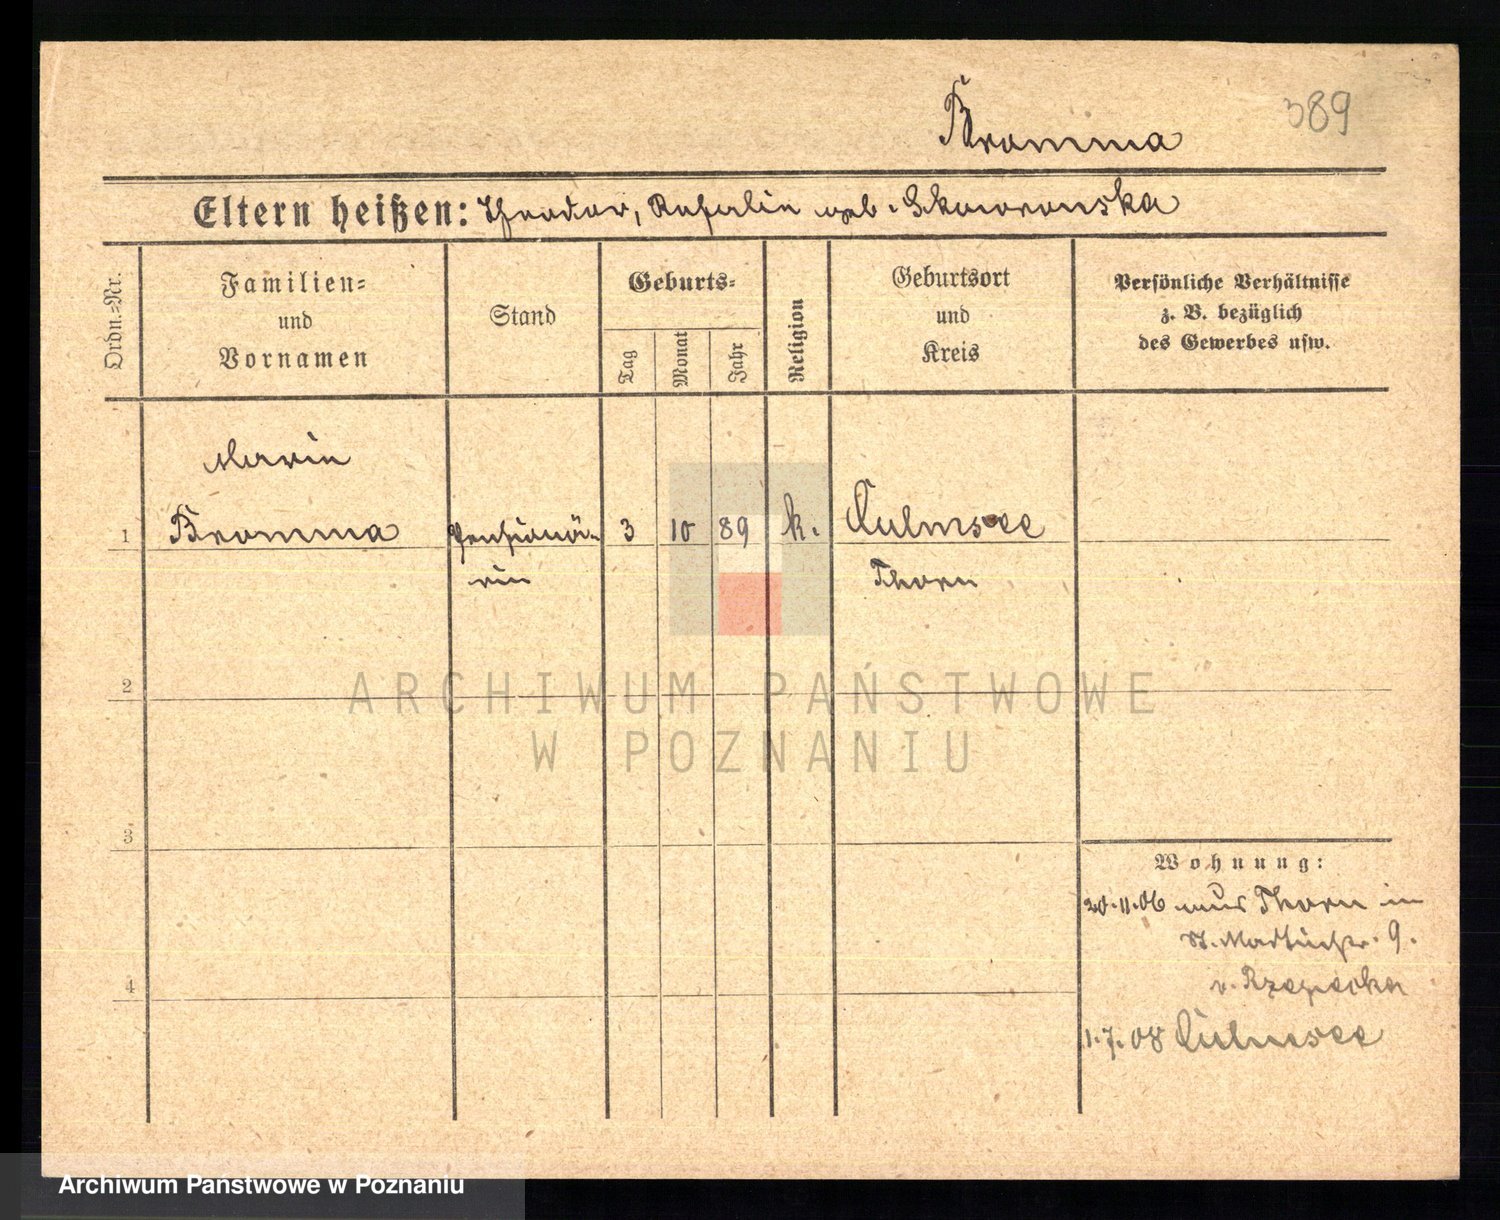 Bromma 389
Eltern heißen: Theodor, Rosalie geb. Skowronska
Ordn.=Nr.
Familien=
und
Vornamen
Stand
Geburts=
Tag
Monat
Jahr
Religion
Geburtsort
und
Kreis
Persönliche Verhältnisse
z. B. bezüglich
des Gewerbes usw.
Marie
1 Bromma Pensionä- 3 10 89 k. Culmsee
rin Thorn
2
ARCHIWUM PAŃSTWOWE
W POZNANIU
3
Wohnung:
20.11.06 aus Thorn in
St. Martinstr. 9.
4
v. Rzepecka
1.7.08 Culmsee
Archiwum Państwowe w Poznaniu